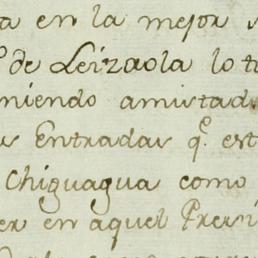 a en la mejor
de Leizaola lo
niendo amistad
Entradas q.e est
Chiguagua como
er en aquel Presi